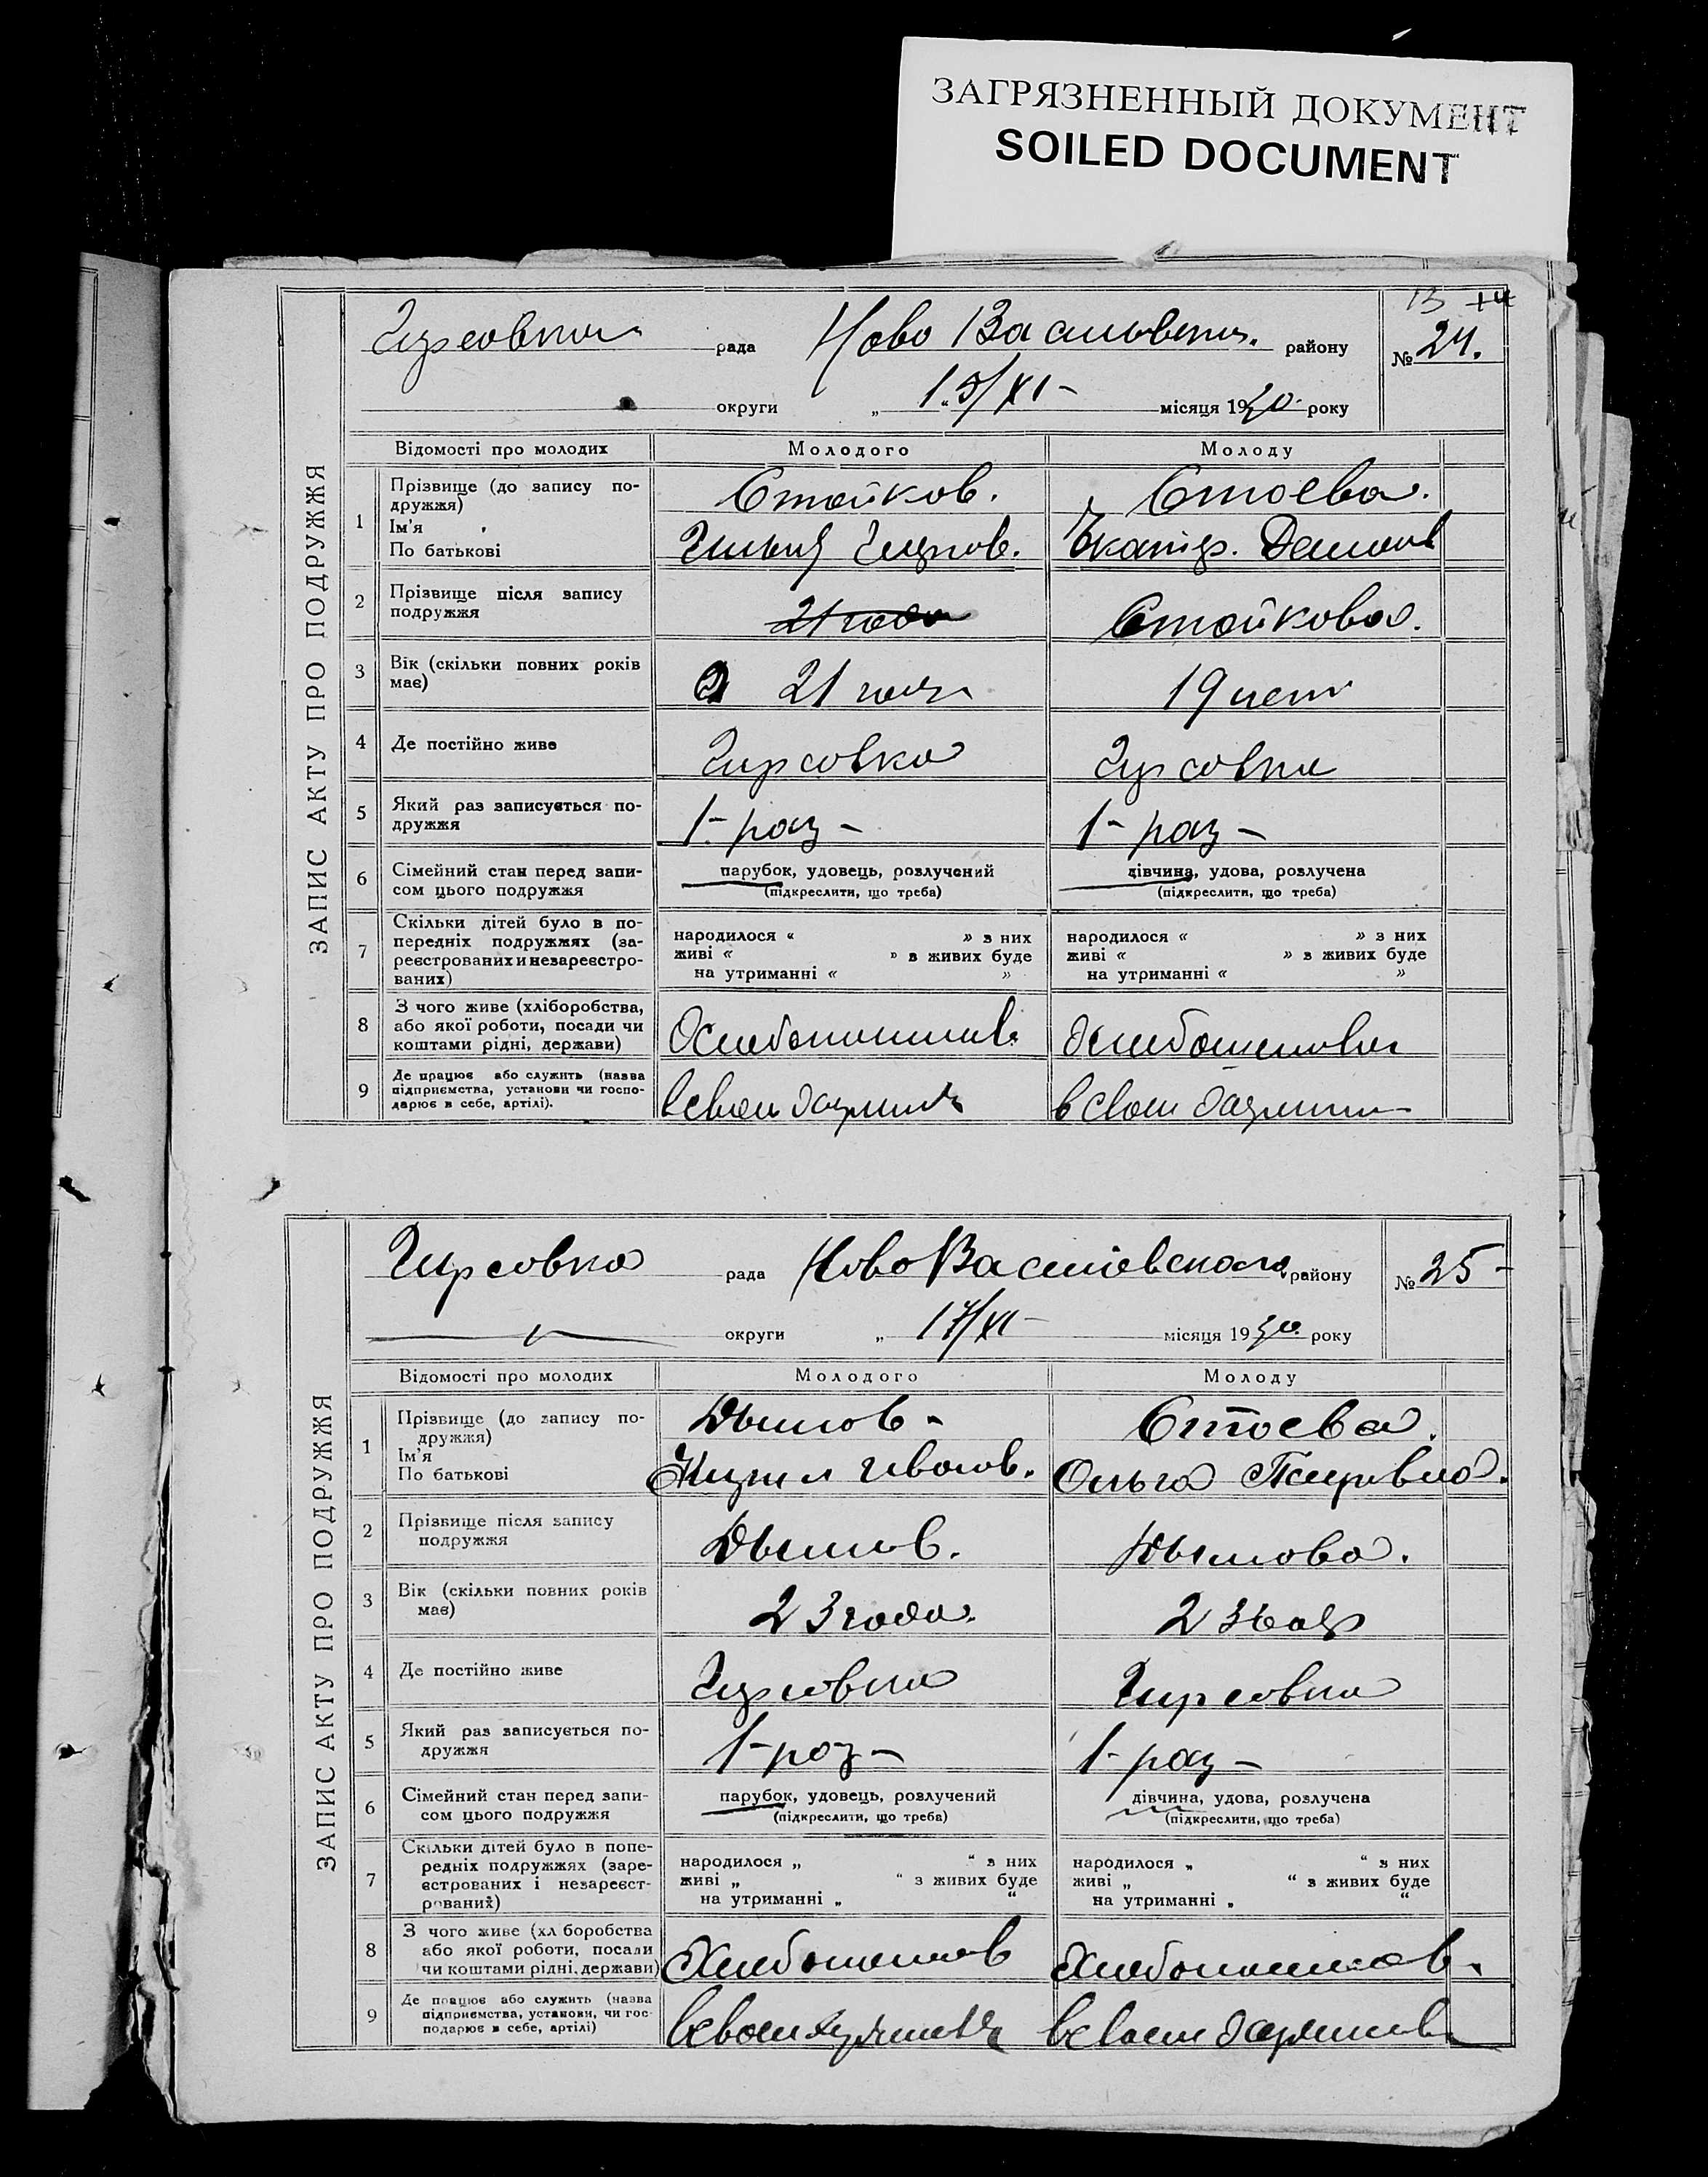 ЗАГРЯЗНЕННЫЙ ДОКУМЕНТ
SOILED DOCUMENT
ЗАПИС АКТУ ПРО ПОДРУЖЖЯ
Гирсовка рада Ново Васильевск. району № 24.
округи „ 15/XI - місяця 1930 року
Відомості про молодих Молодого Молоду
1 Прізвище (до запису по-
дружжя) Стойков. Стоева.
Ім'я
По батькові Илья Екатер.
2 Прізвище після запису
подружжя 21 года Стойкова.
3 Вік (скільки повних років
має) 21 года 19 лет
4 Де постійно живе Гирсовка Гирсовка
5 Який раз записується по-
дружжя 1- раз - 1- раз -
6 Сімейний стан перед запи- парубок, удовець, розлучений дівчина, удова, розлучена
сом цього подружжя (підкреслити, що треба) (підкреслити, що треба)
7 Скільки дітей було в по-
передніх подружжях (за- народилося « » з них народилося « » з них
реєстрованих и незареєстро- живі « » в живих буде живі « » в живих буде
ваних) на утриманні « » на утриманні « »
8 З чого живе (хліборобства,
або якої роботи, посади чи
коштами рідні, держави)
9 Де працює або служить (назва
підприємства, установи чи госпо-
дарює в себе, артілі). в своем в своем
ЗАПИС АКТУ ПРО ПОДРУЖЖЯ
Гирсовка рада Ново Васильевского району № 25 -
округи „ 17/XI - місяця 1930. року
Відомості про молодих Молодого Молоду
1 Прізвище (до запису по-
дружжя) Дымов - Стоева.
Ім'я
По батькові Иванов. Ольга Петровна.
2 Прізвище після запису
подружжя Дымов. Дымова.
3 Вік (скільки повних років
має) 23 года. 23 года
4 Де постійно живе Гирсовка Гирсовка
5 Який раз записується по-
дружжя 1- раз - 1- раз -
6 Сімейний стан перед запи- парубок, удовець, розлучений дівчина, удова, розлучена
сом цього подружжя (підкреслити, що треба) (підкреслити, що треба)
7 Скільки дітей було в попе-
редніх подружжях (заре- народилося „ “ з них народилося „ “ з них
єстрованих і незареєст- живі „ “ з живих буде живі „ “ з живих буде
рованих) на утриманні „ “ на утриманні „ “
8 З чого живе (хл боробства
або якої роботи, посади
чи коштами рідні, держави)
9 Де працює або служить (назва
підприємства, установи, чи гос-
подарює в себе, артілі) в своем в своем